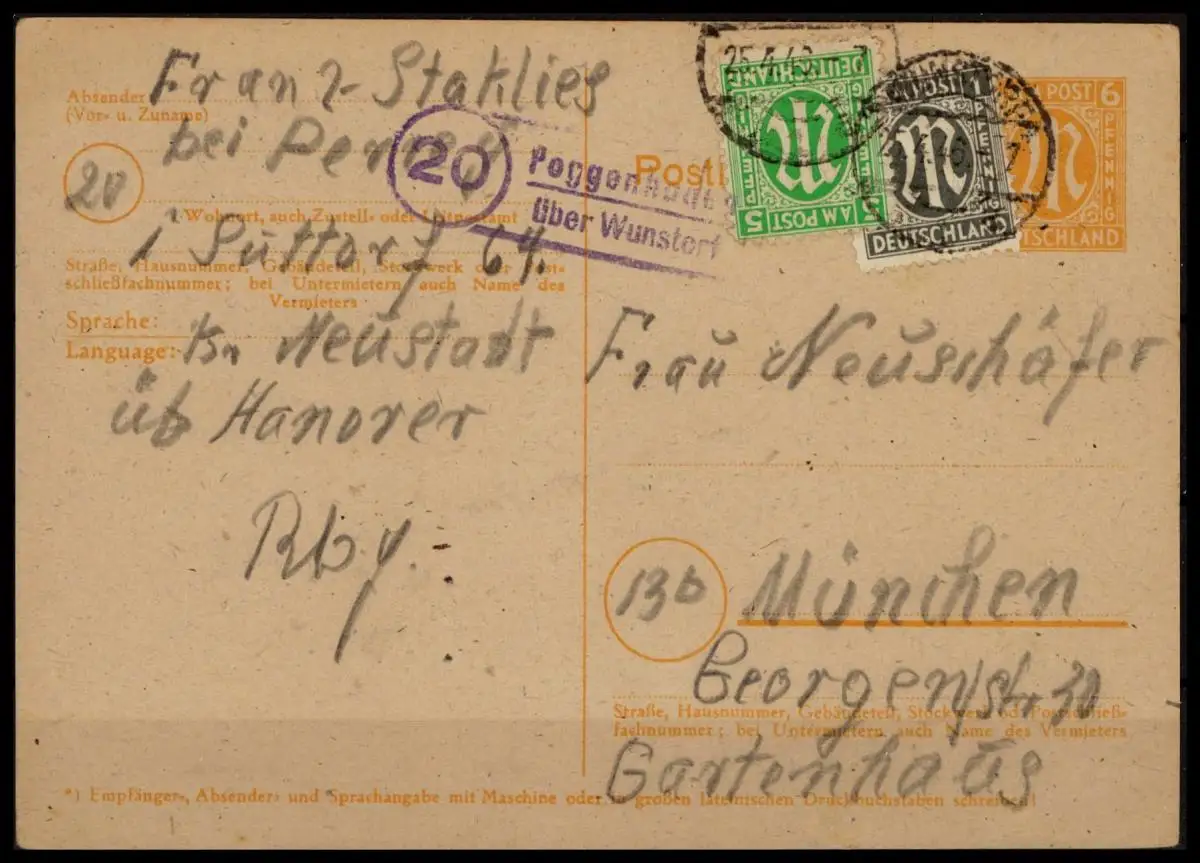 Absender
(Vor- u. Zuname)
Franz Staklies
bei
20
Wohnort, auch Zustell- oder Leitpostamt
i Suttorf 64.
Straße, Hausnummer, Gebäudeteil, Stockwerk oder Post-
schließfachnummer; bei Untermietern auch Name des
Vermieters
Sprache:
Language:
Kr Neustadt
üb Hanover
Rbg.
20
Poggenhagen
über Wunstorf
25.4.46
DEUTSCHLAND
AM POST
5
AM POST 1
PFENNIG
DEUTSCHLAND
AM POST 6
PFENNIG
DEUTSCHLAND
Frau Neuschäfer
13b
München
Georgenstr 30
Straße, Hausnummer, Gebäudeteil, Stockwerk od. Postschließ-
fachnummer; bei Untermietern auch Name des Vermieters
Gartenhaus
*) Empfänger-, Absender- und Sprachangabe mit Maschine oder in großen lateinischen Druckbuchstaben schreiben!